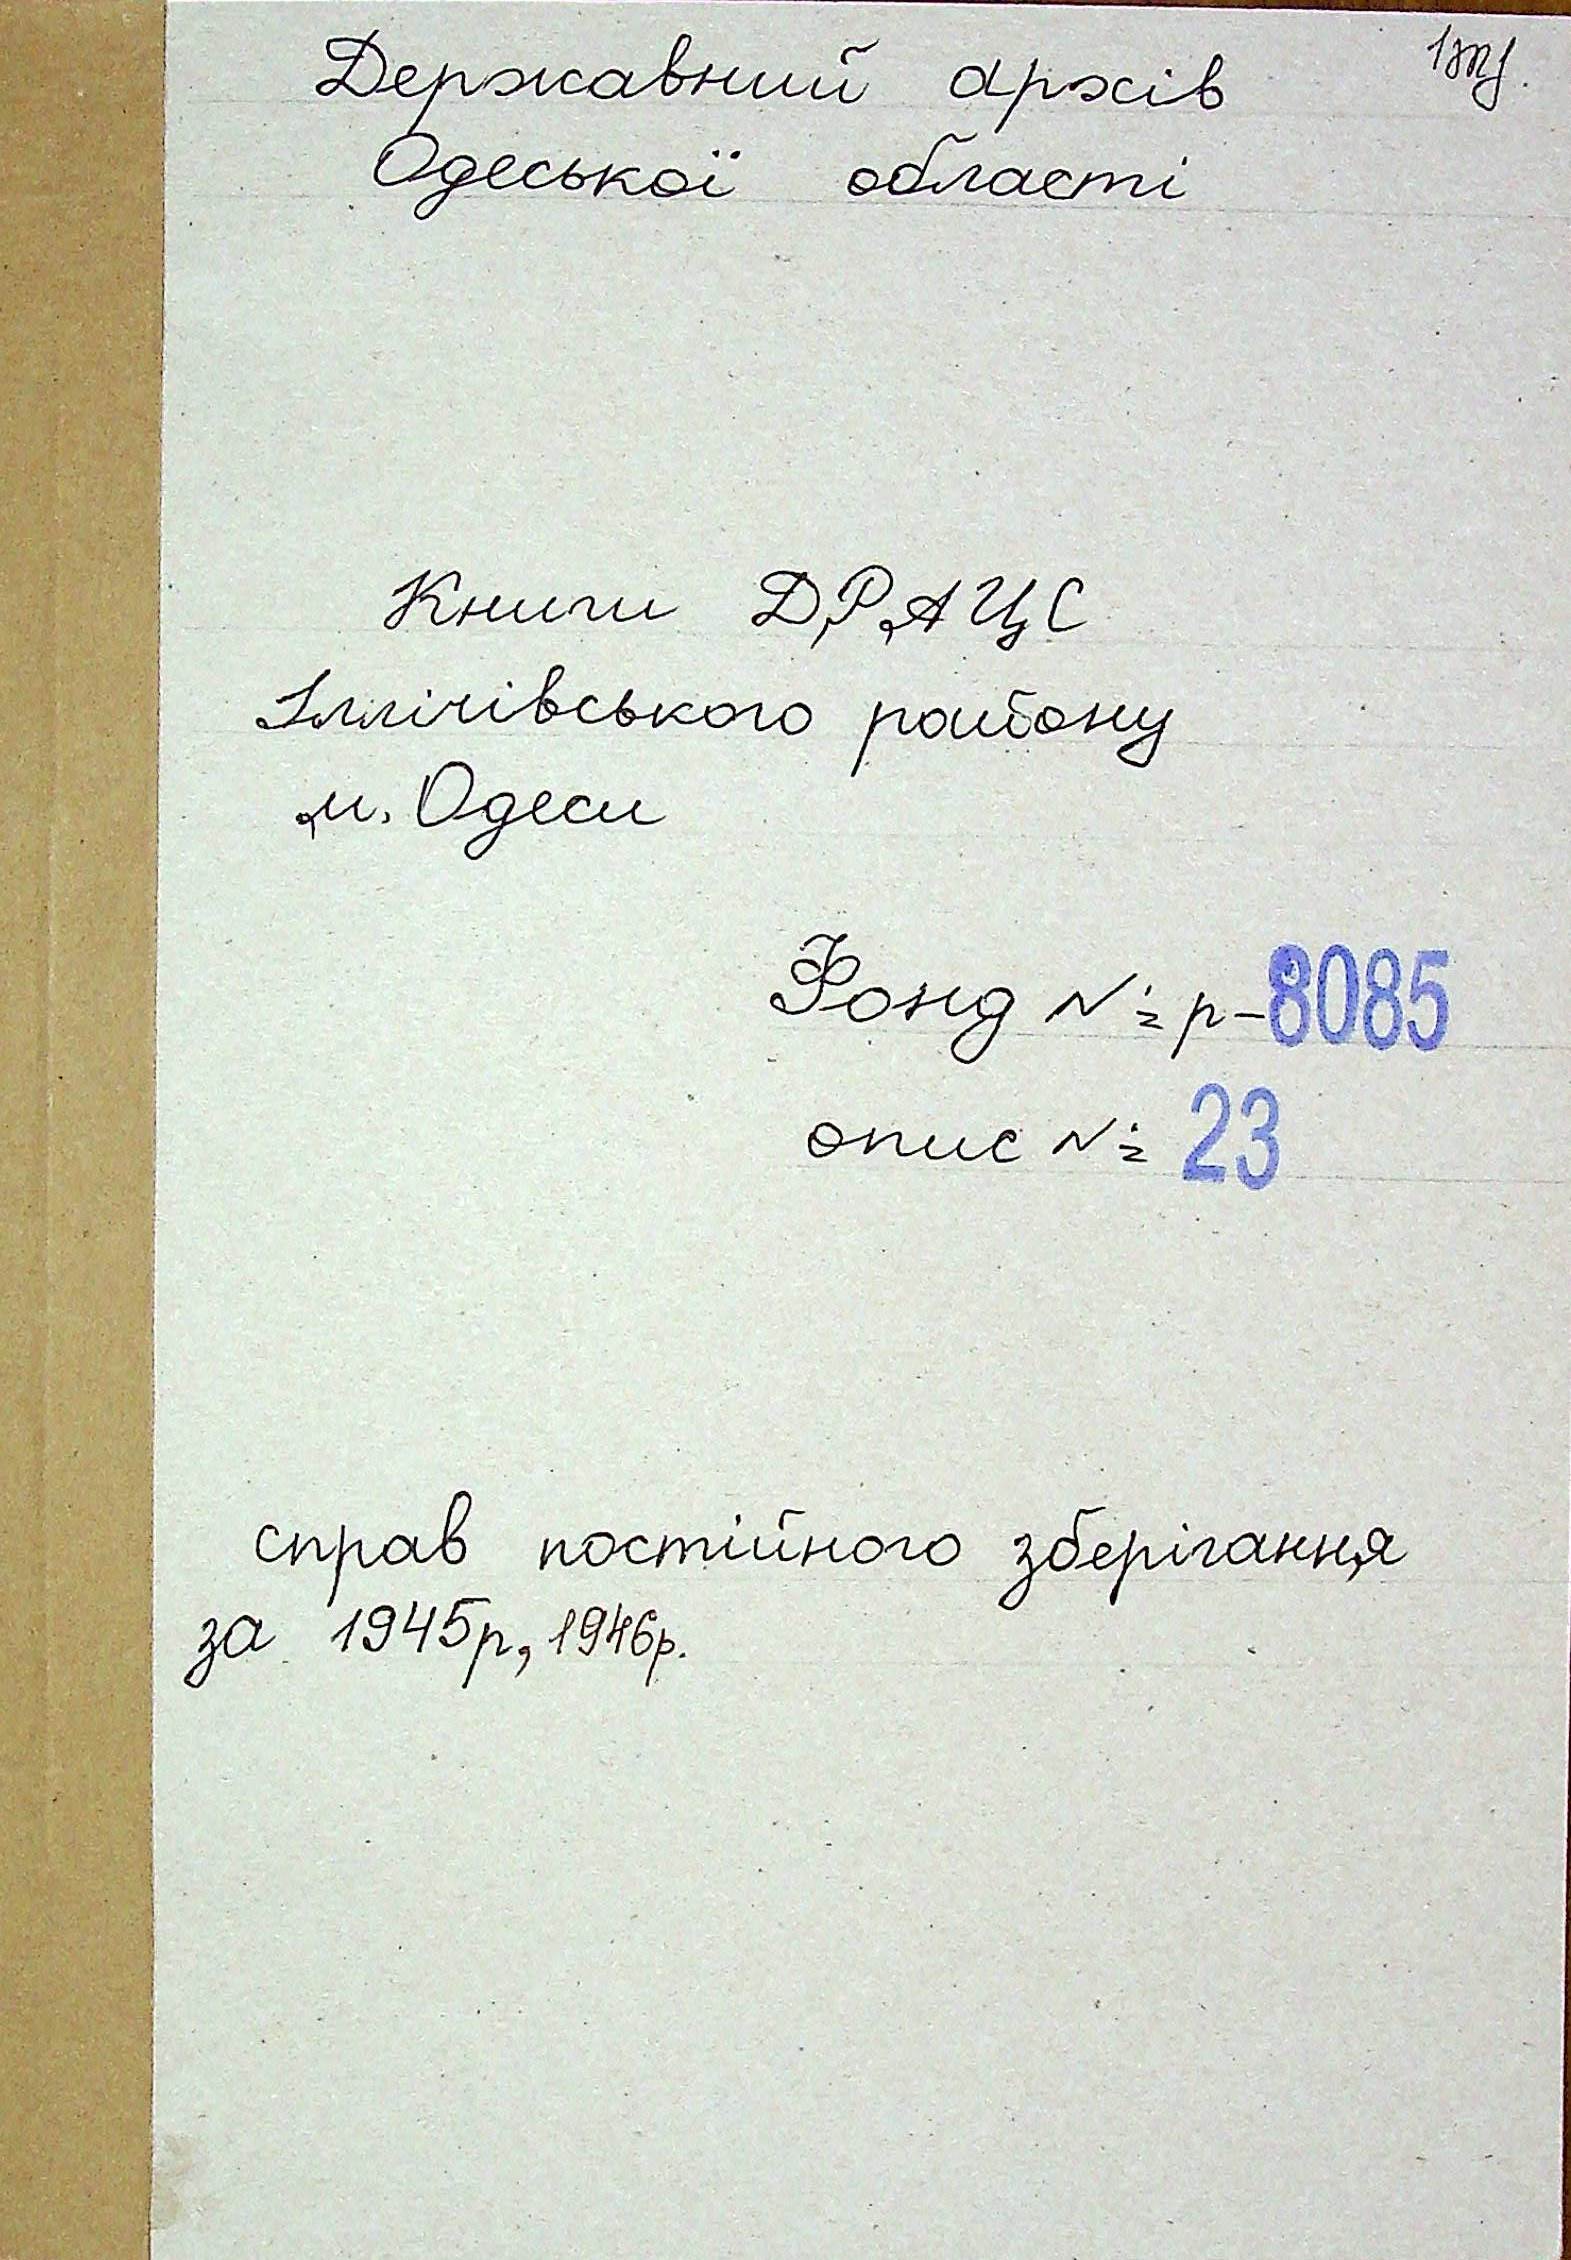 Державний архів
Одеської області
Книги ДРАЦС
Іллічівського району
м. Одеси
Фонд № р-8085
опис № 23
справ постійного зберігання
за 1945р, 1946р.